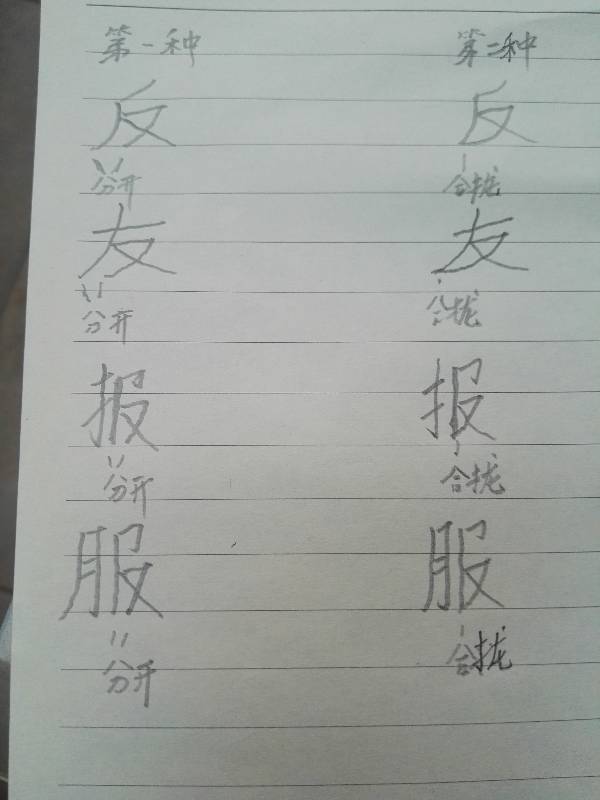 第一种 第二种
反 反
分开 合拢
友 友
分开 合拢
报 报
分开 合拢
服 服
分开 合拢